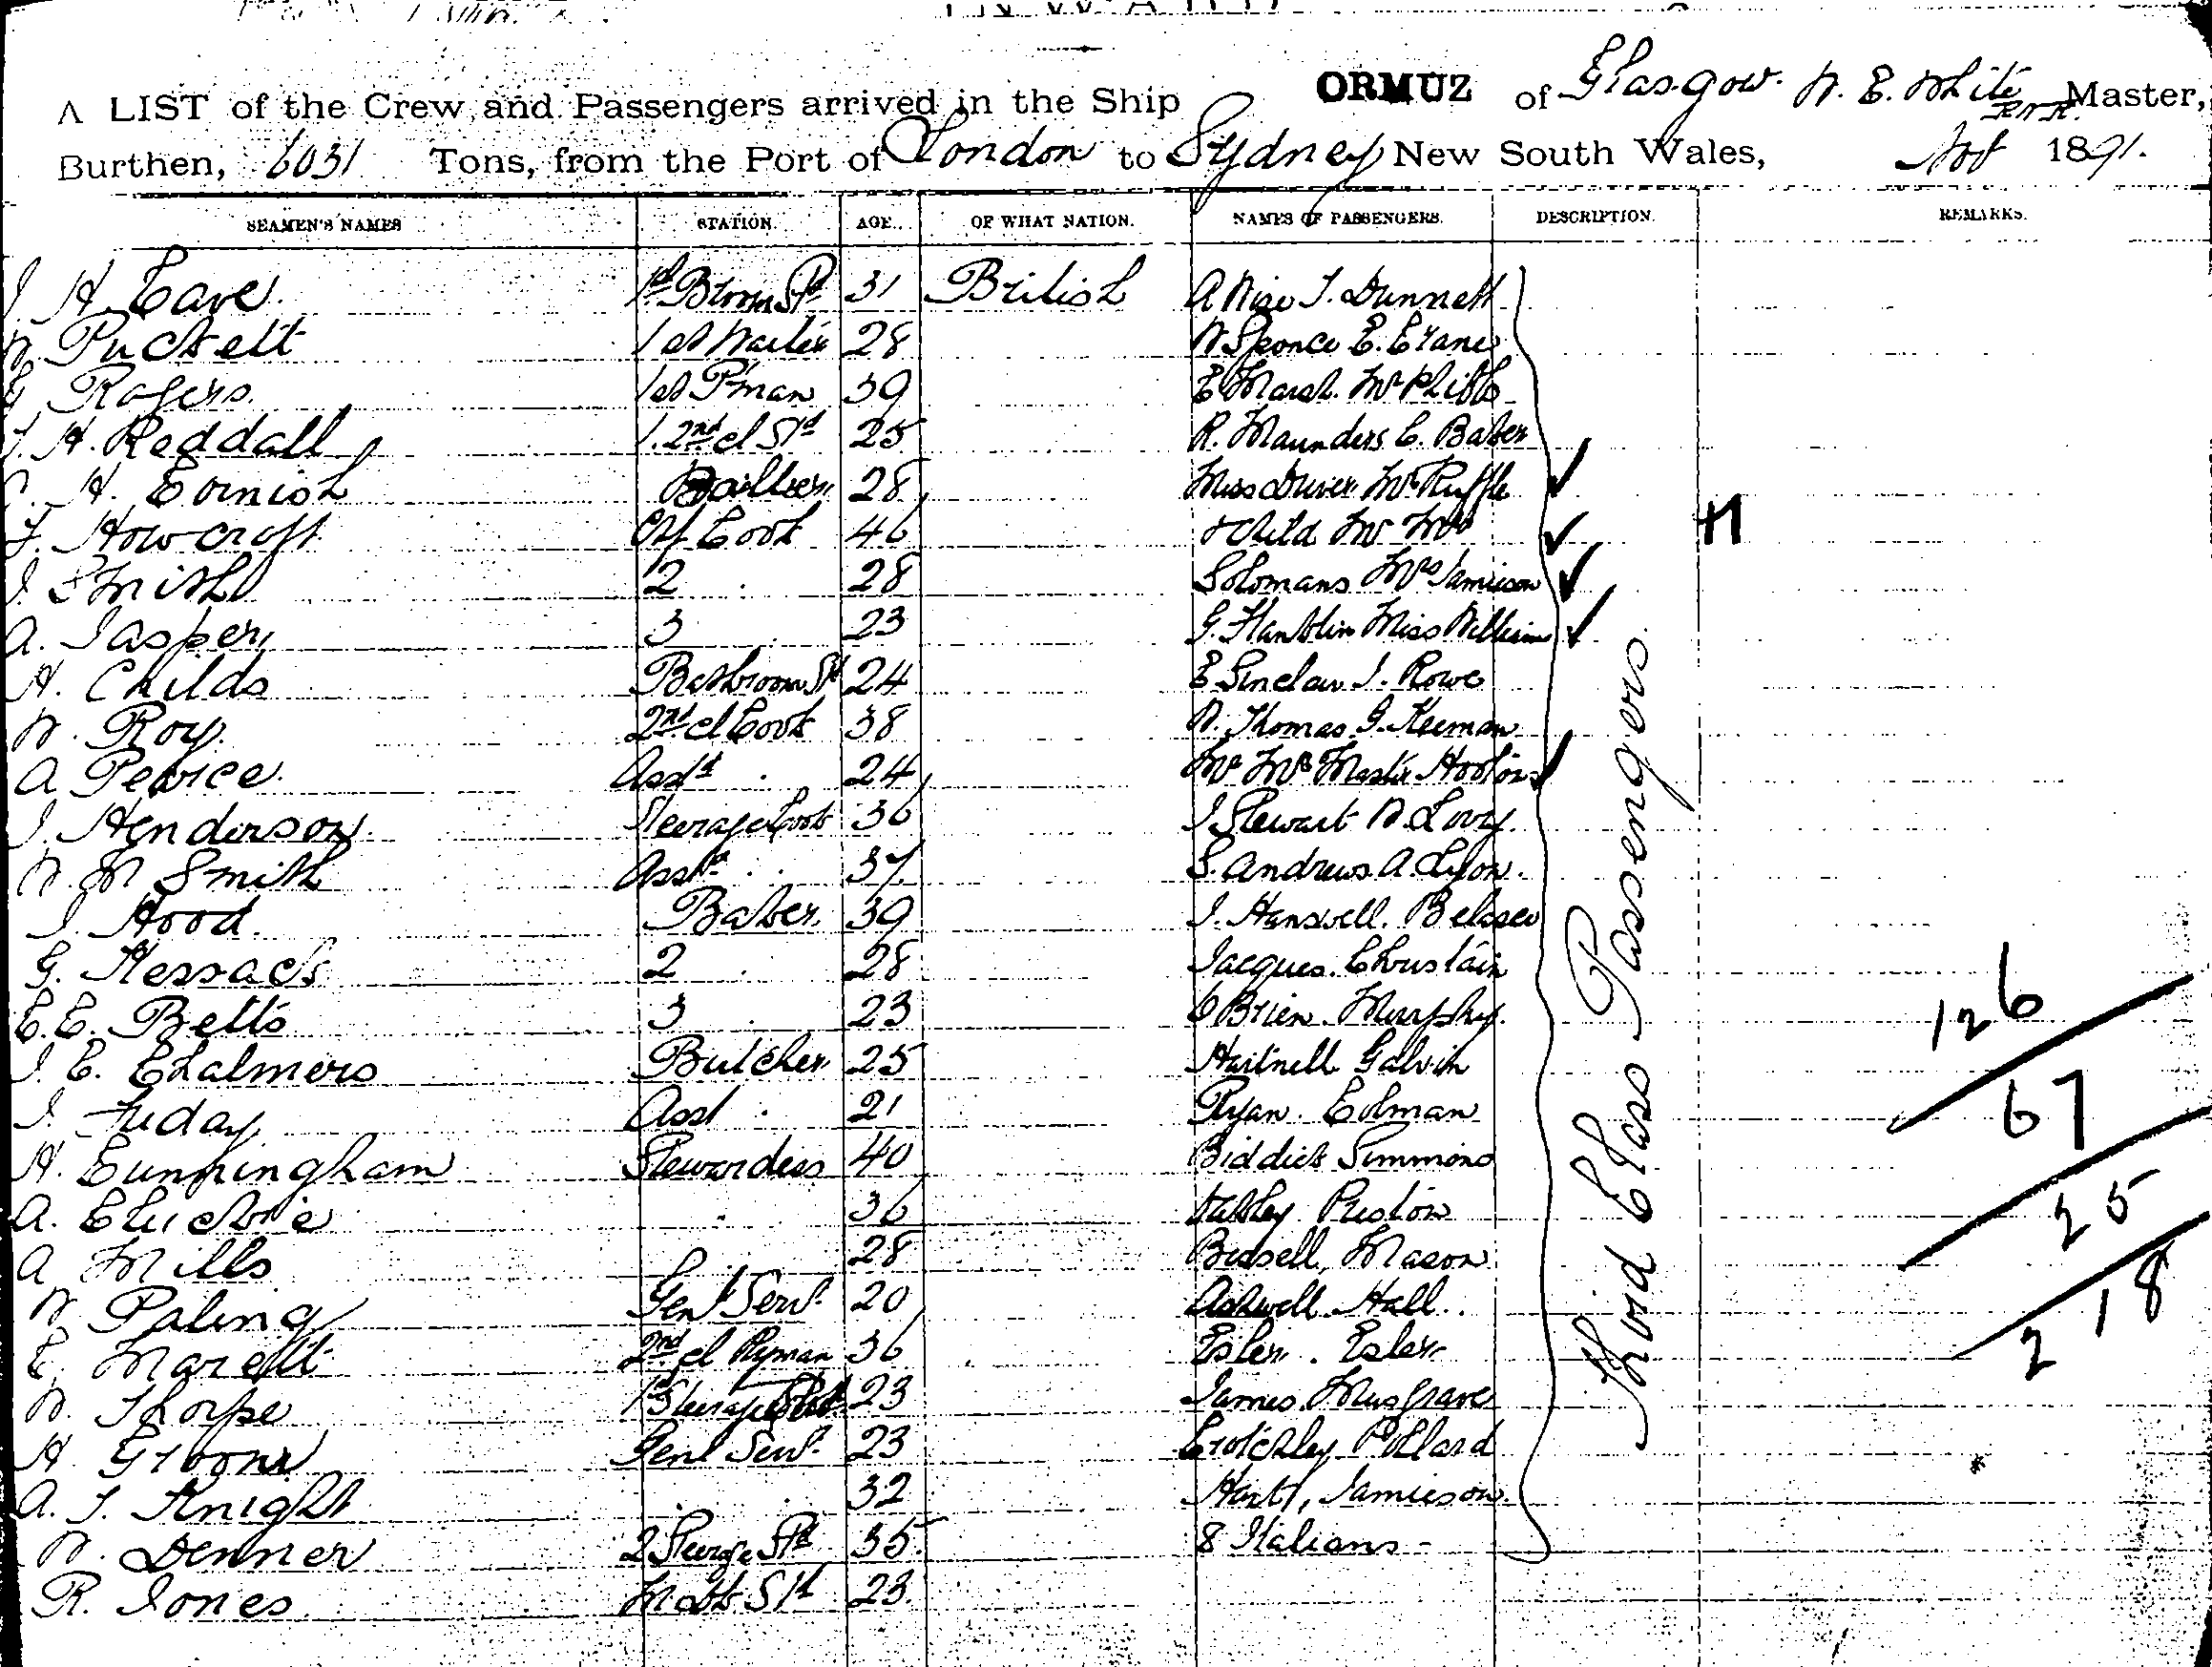 INWARD
A LIST of the Crew and Passengers arrived in the Ship ORMUZ of Glasgow. W. E. White R.N.R. Master,
Burthen, 6031 Tons, from the Port of London to Sydney New South Wales, 1891.
SEAMEN'S NAMES STATION. AGE. OF WHAT NATION. NAMES OF PASSENGERS. DESCRIPTION. REMARKS.
J. H. Cave 31 British A Wise T. Dunnett
W. Puckett 1st Waiter 28 W Spence E. Evans
G Rogers 1st P'man 39 E Marsh. Mr
T. H. Reddall 1. 2nd cl Std 25 R. Maunders C. Baker
C. H. Cornish 28 Miss Driver Mrs Ruffle
F. Howcroft Chf Cook 46 & Child Mr Mrs
J. Smith 2 28 Solomans Mrs Jamieson
A. Jasper 3 23 G. Hamblin Miss William
H. Childs Bathroom Std 24 E Sinclair J. Rowe
W. Roy 2nd cl Cook 38 W. Thomas G. Keeman
A Pearce Asst . 24 Mr Mrs Master
J. Henderson Steerage Cook 36 J Stewart W. Lovy
W. M Smith Asst . 37 S. Andrews A. Lyon.
J. Hood Baker 39 J. Hanswell.
G. Kessack 2 28 Jacques Christain
E. E. Betts 3 23 O Brien Murphy.
J. C. Chalmers Butcher 25 Hartnell Galvin
J. Friday Asst 21 Ryan. Colman
H. Cunningham Stewardess 40 Biddick Simmons
A. 36 Preston
A Mills 28 Bissell, Mason
W Paling Genl Servt 20 Ashwell Hall.
E. Marett 2nd cl P'man 36 Esler. Esler
W. Thorpe 23 James Musgrave
H Genl Servt 23 Crotchley Pollard
A. J. Knight 32 Hart, Jamieson.
W. Denner 2 Steerage Std 35 8 Italians -
R. Jones 23
Third Class Passengers
126
67
25
218